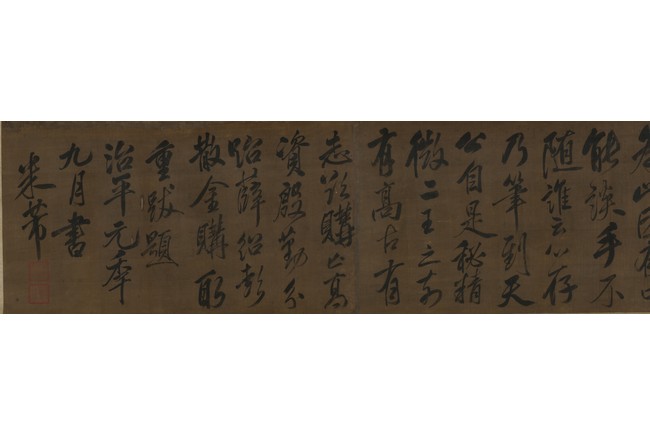 能談手不
隨誰云心存
乃筆到天
公自是秘精
微二王之前
有高古有
志欲購亡高
資殷勤分
貽薛紹彭
散金購取
重跋題
治平元年
九月書
米芾